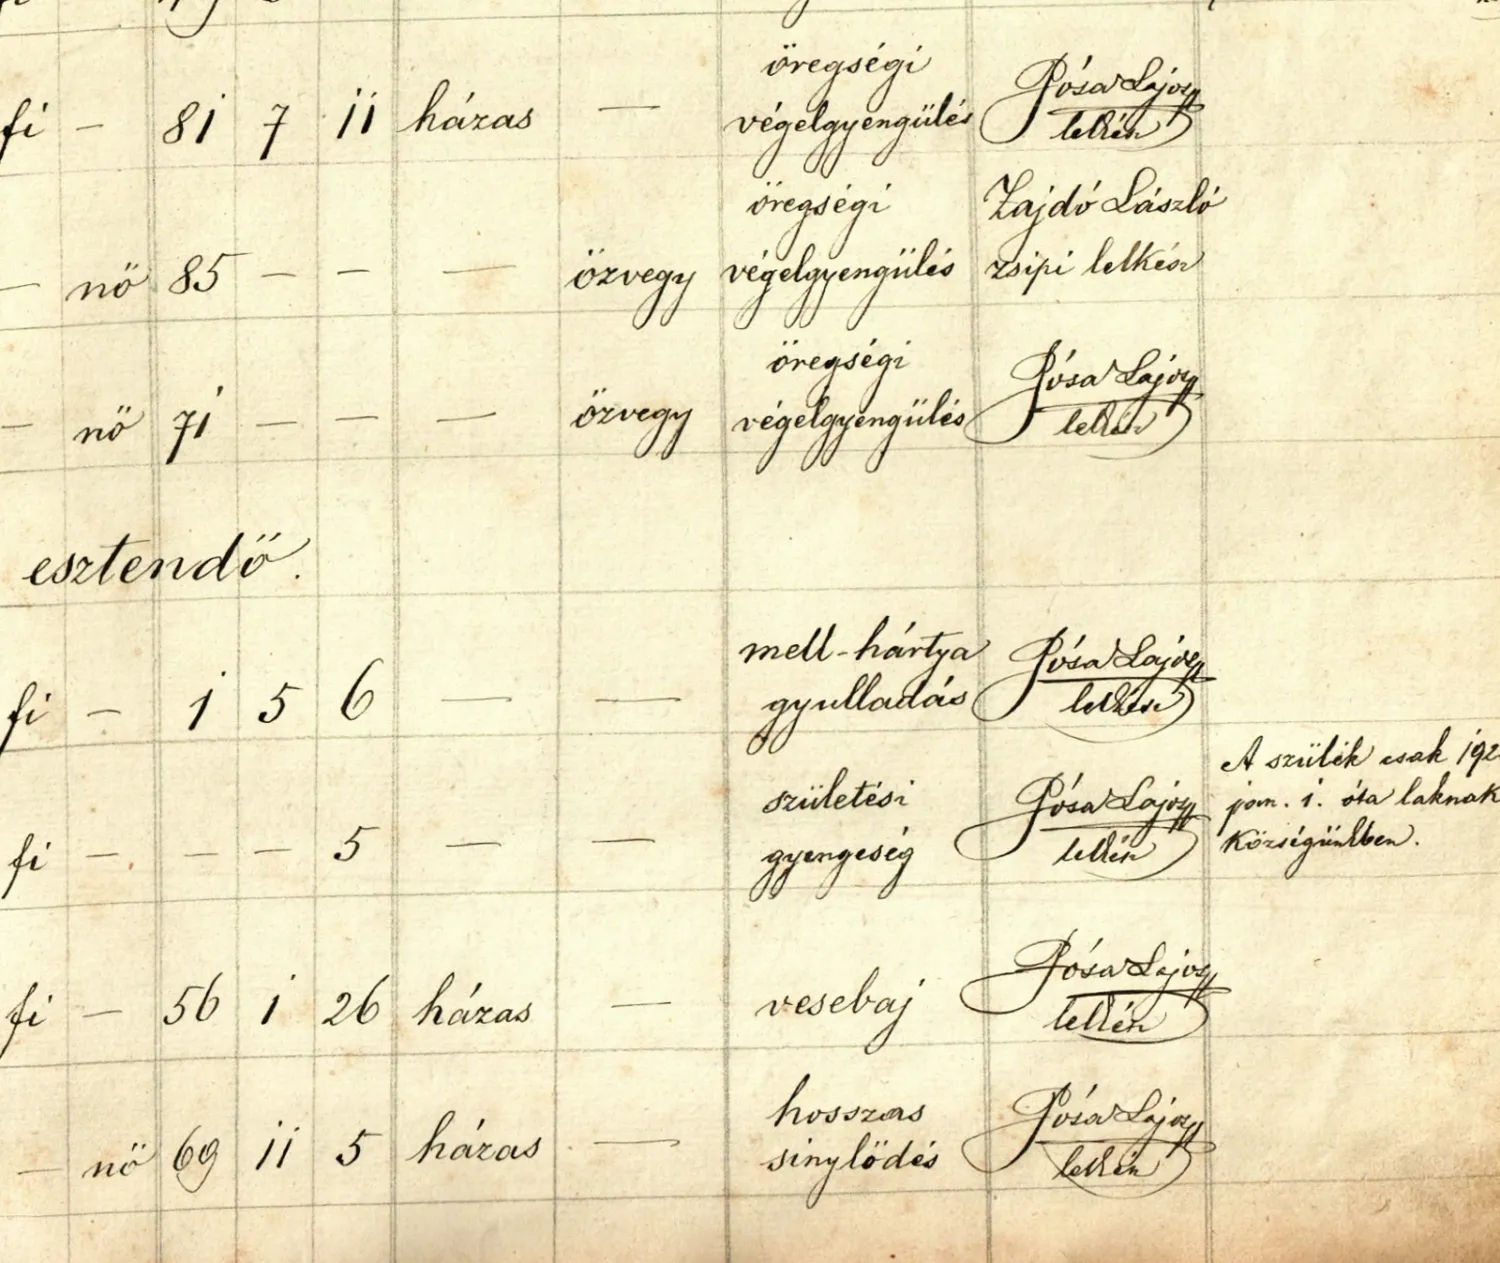 öregségi Pósa Lajos
fi — 81 7 11 házas — végelgyengülés lelkész
öregségi Zajdó László
— nő 85 — — — özvegy végelgyengülés zsipi lelkész
öregségi Pósa Lajos
— nő 71 — — — özvegy végelgyengülés lelkész
esztendő.
mell-hártya Pósa Lajos
fi — 1 5 6 — — gyulladás lelkész
A szülék csak 192
születési Pósa Lajos jan. 1. óta laknak
fi — — — 5 — — gyengeség lelkész községünkben.
Pósa Lajos
fi — 56 1 26 házas — vesebaj lelkész
hosszas Pósa Lajos
— nő 69 11 5 házas — sinylödés lelkész